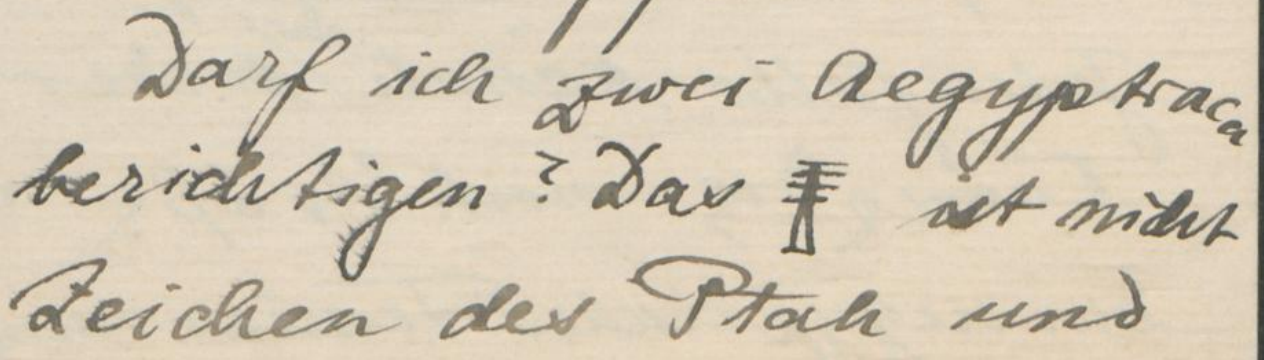 Darf ich zwei Aegyptiaca
berichtigen? Das 𓊽 ist nicht
Zeichen des Ptah und